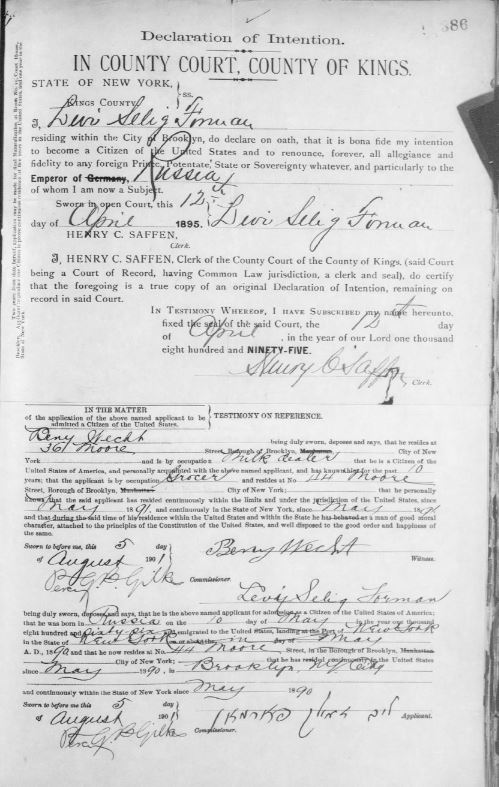 386
Declaration of Intention.
IN COUNTY COURT, COUNTY OF KINGS.
STATE OF NEW YORK, } ss.
KINGS COUNTY,
I, Levi Selig Forman
residing within the City of Brooklyn, do declare on oath, that it is bona fide my intention
to become a Citizen of the United States and to renounce, forever, all allegiance and
fidelity to any foreign Prince, Potentate, State or Sovereignty whatever, and particularly to the
Emperor of Germany, Russia
of whom I am now a Subject.
Sworn in open Court, this 12th
day of April 1895. Levi Selig Forman
HENRY C. SAFFEN,
Clerk.
I, HENRY C. SAFFEN, Clerk of the County Court of the County of Kings, (said Court
being a Court of Record, having Common Law jurisdiction, a clerk and seal), do certify
that the foregoing is a true copy of an original Declaration of Intention, remaining on
record in said Court.
IN TESTIMONY WHEREOF, I HAVE SUBSCRIBED my name hereunto,
fixed the seal of the said Court, the 12th day
of April, in the year of our Lord one thousand
eight hundred and NINETY-FIVE.
Henry C. Saffen, Clerk.
IN THE MATTER
of the application of the above named applicant to be
admitted a Citizen of the United States. } TESTIMONY ON REFERENCE.
Beny Wecht being duly sworn, deposes and says, that he resides at
361 Moore Street, Borough of Brooklyn, Manhattan City of New
York and is by occupation Milk dealer that he is a Citizen of the
United States of America, and personally acquainted with the above named applicant, and has known him for the past 10
years; that the applicant is by occupation Grocer and resides at No 44 Moore
Street, Borough of Brooklyn, Manhattan City of New York; that he personally
knows that the said applicant has resided continuously within the limits and under the jurisdiction of the United States, since
May 1891, and continuously in the State of New York, since May 1891
and that during the said time of his residence within the United States and within the State he has behaved as a man of good moral
character, attached to the principles of the Constitution of the United States, and well disposed to the good order and happiness of
the same.
Sworn to before me, this 5 day
of August 1901 Beny Wecht Witness.
Commissioner.
Levi Selig Forman
being duly sworn, deposes and says, that he is the above named applicant for admission as a Citizen of the United States of America;
that he was born in Russia on the 10 day of May in the year one thousand
eight hundred and sixty six emigrated to the United States, landing at the Port of New York
in the State of New York on or about the in day of May
A. D., 1890 and that he now resides at No. 44 Moore Street, in the Borough of Brooklyn, Manhattan
City of New York; that he has resided continuously in the United States
since May 1890, in Brooklyn, NY City
and continuously within the State of New York since May 1890
Sworn to before me, this 5 day
of August 1901 Applicant.
Commissioner.